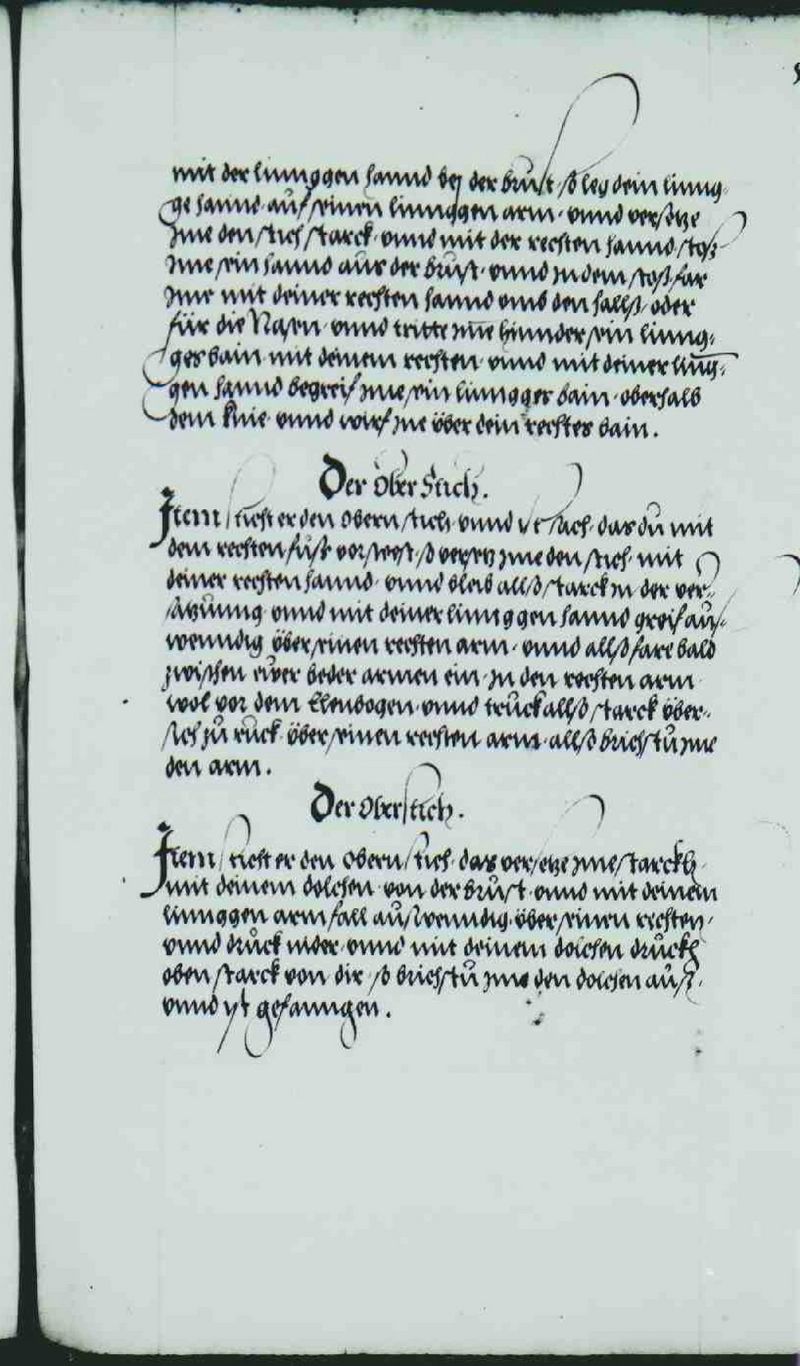 mit der linnggen hannd bej der brust so leg dein linng-
ge hannd auf seinen linnggen arm vnnd versetze
jme den stich starck vnnd mit der rechten hannd stoß
jme sein hannd aus der brust vnnd jn dem stoß far
jme mit deiner rechten hannd vmb den hallß oder
für die Nasen vnnd tritte jme hinnder sein linng-
ges bain mit deinem rechten vnnd mit deiner ling-
gen hannd begreif jme sein linngges bain oberhalb
dem knie vnnd wirf jne über dein rechtes bain.
Der ober Stich.
Item sticht er den obern stich vnnd ist sach das du mit
dem rechten fuß vor steest so versetz jme den stich mit
deiner rechten hannd vnnd bleib allso starck in der ver-
satzunng vnnd mit deiner linnggen hannd greif aus-
wenndig über seinen rechten arm vnnd allso fare bald
zwischen eüer beder armen ein jn den rechten arm
wol vor dem Elenbogen vnnd truck allso starck über-
sich zu ruck über seinen rechten arm allso brichstu jme
den arm.
Der oberstich.
Item sticht er den obern stich das versetze jme starckh
mit deinem dolchen von der brust vnnd mit deinem
linnggen arm fall auswenndig über seinen rechten
vnnd druck nider vnnd mit deinem dolchen druckh
oben starck von dir so brichstu jme den dolchen auß
vnnd yst gefanngen.